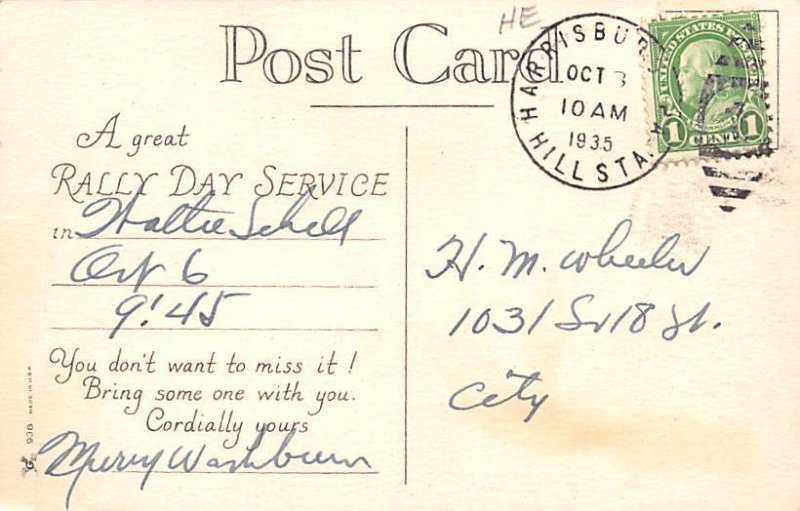 HE
Post Card
HARRISBURG
OCT 3
10 AM
1935
HILL STA.
UNITED STATES POSTAGE
1 CENT 1
A great
RALLY DAY SERVICE
in
Oct 6
9:45
You don't want to miss it!
Bring some one with you.
Cordially yours
Washburn
H. M. Wheeler
1031 So 18 St.
City
936 MADE IN U.S.A.